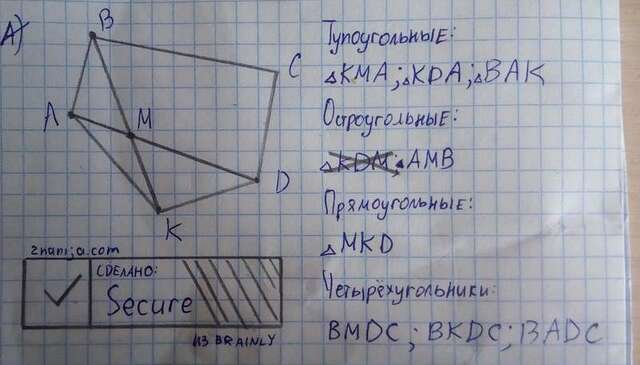 А)
B
C
A
M
D
K
Тупоугольные:
△KMA; △KDA; △BAK
Остроугольные:
△KDM; △AMB
Прямоугольные:
△MKD
Четырёхугольники:
BMDC; BKDC; BADC
znanija.com
СДЕЛАНО:
Secure
ИЗ BRAINLY